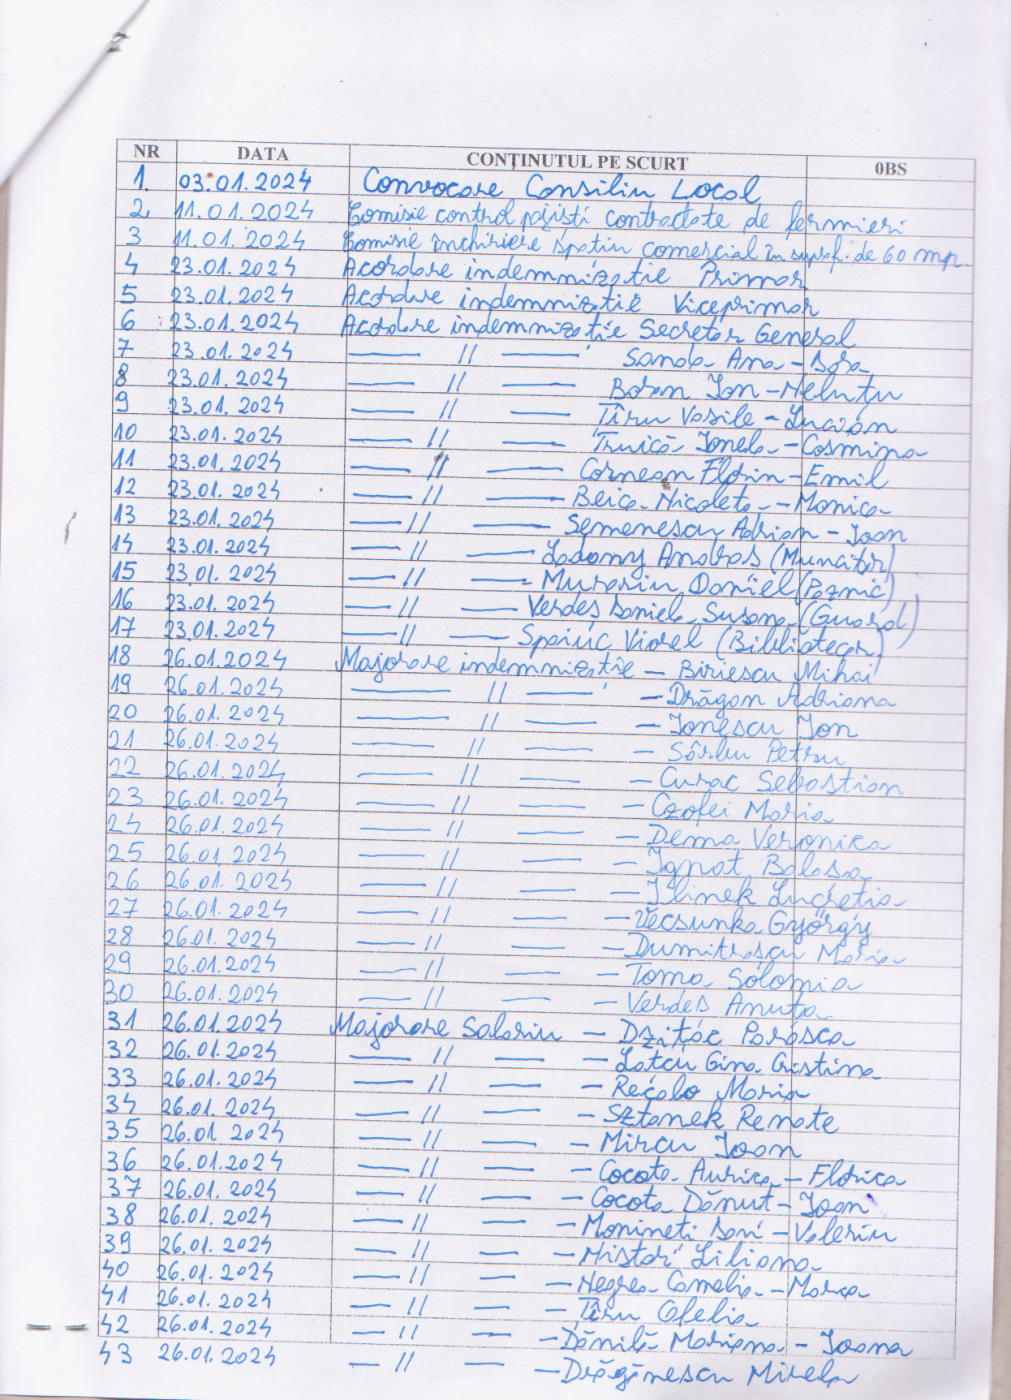 NR DATA CONȚINUTUL PE SCURT 0BS
1. 03.01.2024 Convocare Consiliu Local
2 11.01.2024 Comisie control pajisti contractate de fermieri
3 11.01.2024 Comisie închiriere spatiu comercial în supraf. de 60 mp.
4 23.01.2024 Acordare indemnizatie Primar
5 23.01.2024 Acordare indemnizatie Viceprimar
6 23.01.2024 Acordare indemnizatie Secretar General
7 23.01.2024 — // — Sanda Ana - Dora
8 23.01.2024 — // — Boran Ion - Neluțu
9 23.01.2024 — // — Tîru Vasile - Lucian
10 23.01.2024 — // — Truică Ionela - Cosmina
11 23.01.2024 — // — Cornean Florin - Emil
12 23.01.2024 — // — Beica Nicoleta - Monica
13 23.01.2024 — // — Semenescu Adrian - Ioan
14 23.01.2024 — // — Andras (Muncitor)
15 23.01.2024 — // — Murariu Daniel (Paznic)
16 23.01.2024 — // — Verdes Daniela Susana (Guard)
17 23.01.2024 — // — Spaiuc Viorel (Bibliotecar)
18 26.01.2024 Majorare indemnizatie — Biriescu Mihai
19 26.01.2024 — // — - Drăgan Adriana
20 26.01.2024 — // — - Ionescu Ion
21 26.01.2024 — // — - Sârbu Petru
22 26.01.2024 — // — - Curac Sebastian
23 26.01.2024 — // — - Czofei Maria
24 26.01.2024 — // — - Dema Veronica
25 26.01.2024 — // — - Ignat Balosa
26 26.01.2024 — // — - Ilinek Lucretia
27 26.01.2024 — // — - Vecsunka György
28 26.01.2024 — // — - Dumitrascu Maria
29 26.01.2024 — // — - Toma Solomia
30 26.01.2024 — // — - Verdes Anuța
31 26.01.2024 Majorare Salariu - Dzițac Parasca
32 26.01.2024 — // — - Latcu Gina Cristina
33 26.01.2024 — // — - Recalo Maria
34 26.01.2024 — // — - Sztanek Renate
35 26.01 2024 — // — - Mircu Ioan
36 26.01.2024 — // — - Cocota Aurica - Florica
37 26.01.2024 — // — - Cocota Dănut - Ioan
38 26.01.2024 — // — - Monineti Dani - Valeriu
39 26.01.2024 — // — - Mistor Liliana
40 26.01.2024 — // — - Negrea Camelia - Mara
41 26.01.2024 — // — - Tîru Ofelia
42 26.01.2024 — // — - Dănilă Mariana - Ioana
43 26.01.2024 — // — - Drăgănescu Mirela